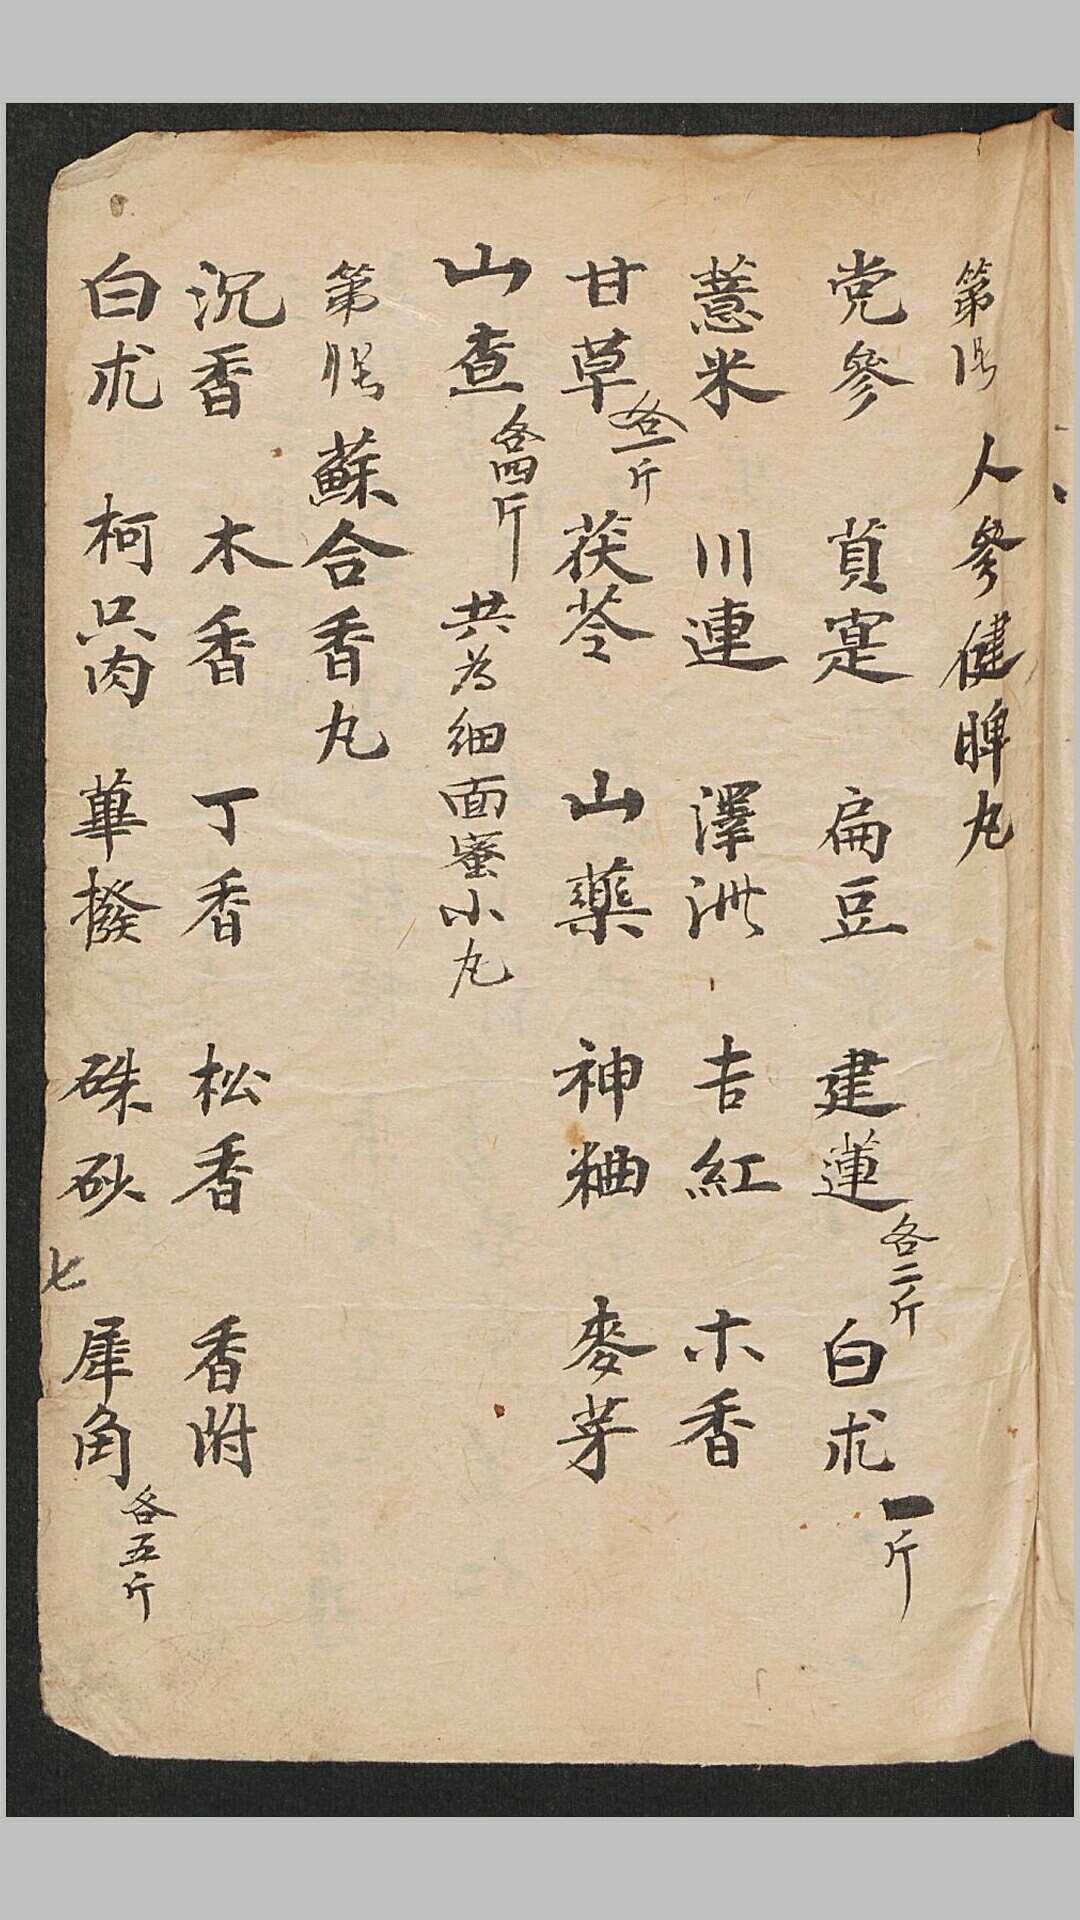 第 人參健脾丸
党參 萯寔 扁豆 建蓮各二斤 白朮一斤
薏米 川連 澤泄 吉紅 木香
甘草各一斤 茯苓 山藥 神粬 麥芽
山查各四斤 共為細面蜜小丸
第 蘇合香丸
沉香 木香 丁香 松香 香附
白朮 柯只肉 蓽撥 硃砂七 犀角各五斤